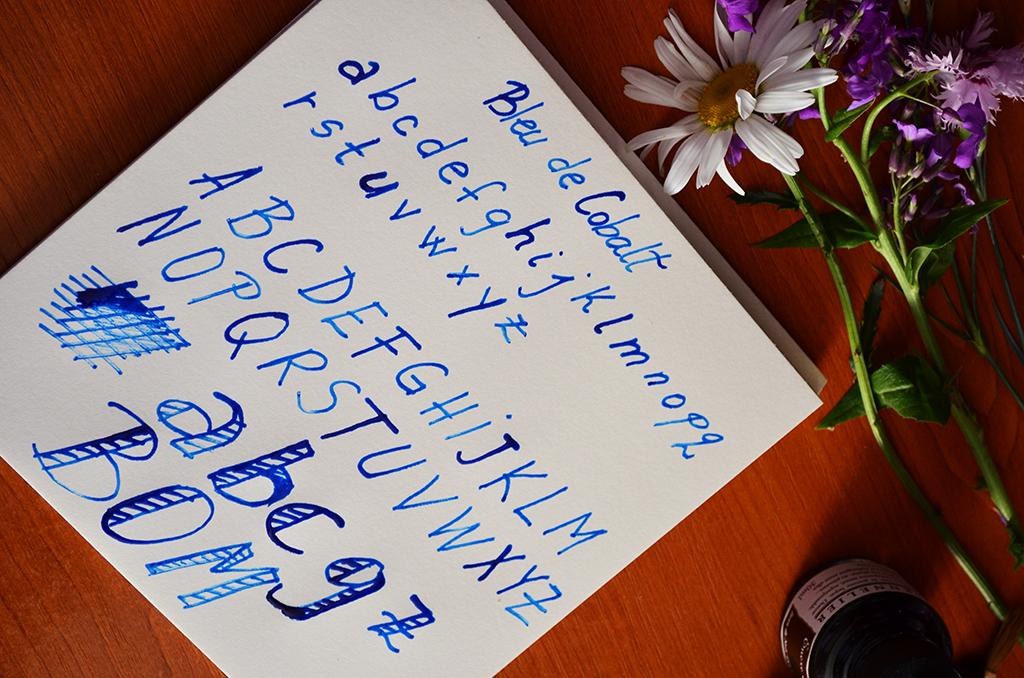 Bleu de Cobalt
a b c d e f g h i j k l m n o p q
r s t u v w x y z
A B C D E F G H I J K L M
N O P Q R S T U V W X Y Z
a b c g z
B O M
NELIER